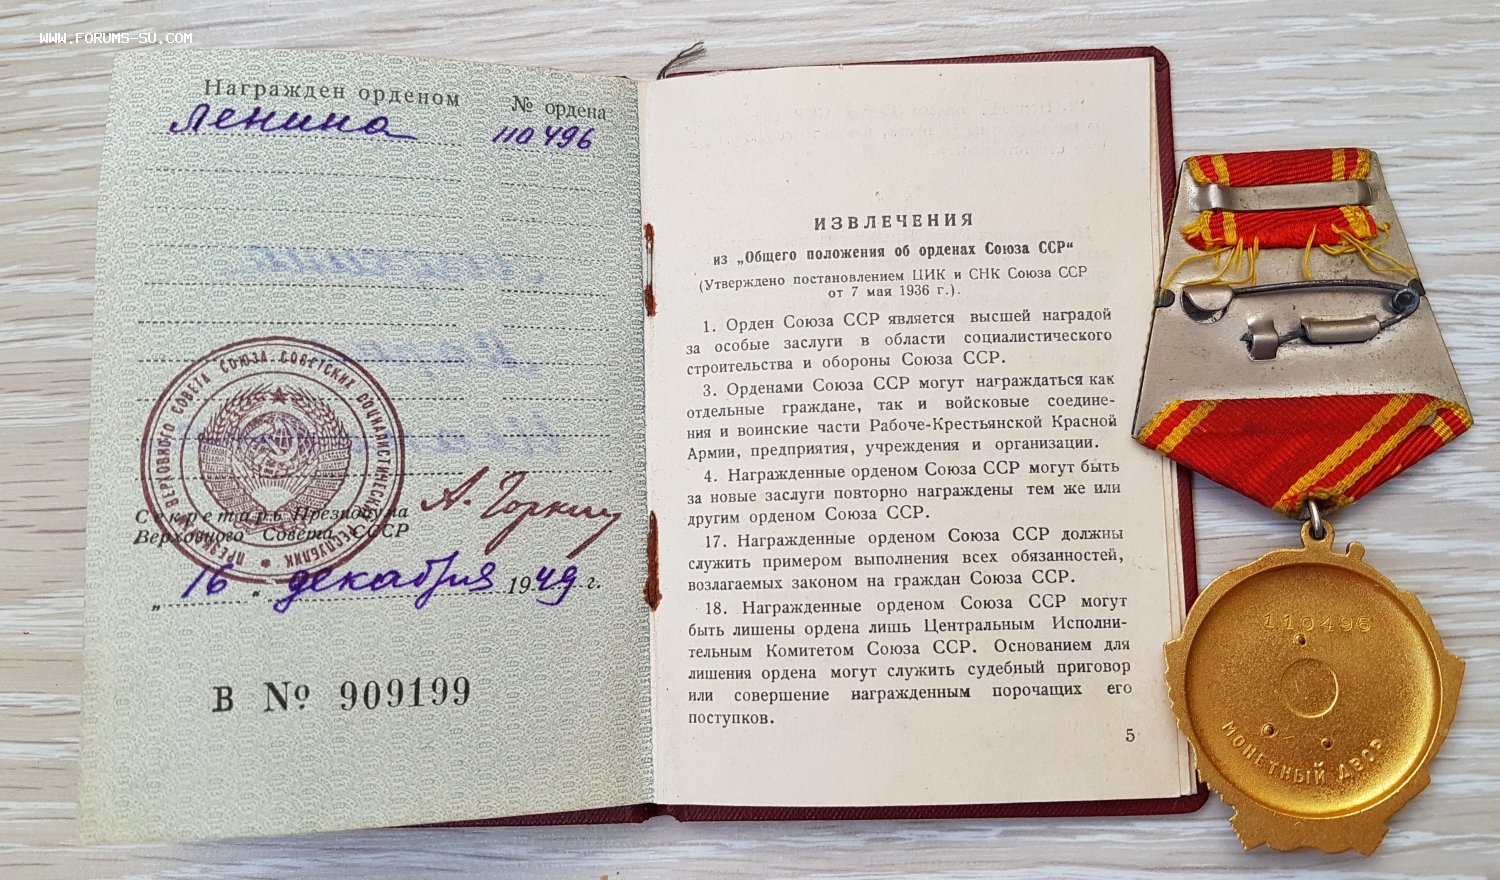 WWW.FORUMS-SU.COM
Награжден орденом
№ ордена
Ленина
110496
ПРЕЗИДИУМ ВЕРХОВНОГО СОВЕТА СОЮЗА СОВЕТСКИХ СОЦИАЛИСТИЧЕСКИХ РЕСПУБЛИК
Секретарь Президиума
Верховного Совета СССР
А. Горкин
„ 16 “ декабря 1949 г.
В № 909199
ИЗВЛЕЧЕНИЯ
из „Общего положения об орденах Союза ССР“
(Утверждено постановлением ЦИК и СНК Союза ССР
от 7 мая 1936 г.).
1. Орден Союза ССР является высшей наградой
за особые заслуги в области социалистического
строительства и обороны Союза ССР.
3. Орденами Союза ССР могут награждаться как
отдельные граждане, так и войсковые соедине-
ния и воинские части Рабоче-Крестьянской Красной
Армии, предприятия, учреждения и организации.
4. Награжденные орденом Союза ССР могут быть
за новые заслуги повторно награждены тем же или
другим орденом Союза ССР.
17. Награжденные орденом Союза ССР должны
служить примером выполнения всех обязанностей,
возлагаемых законом на граждан Союза ССР.
18. Награжденные орденом Союза ССР могут
быть лишены ордена лишь Центральным Исполни-
тельным Комитетом Союза ССР. Основанием для
лишения ордена могут служить судебный приговор
или совершение награжденным порочащих его
поступков.
5
110496
МОНЕТНЫЙ ДВОР